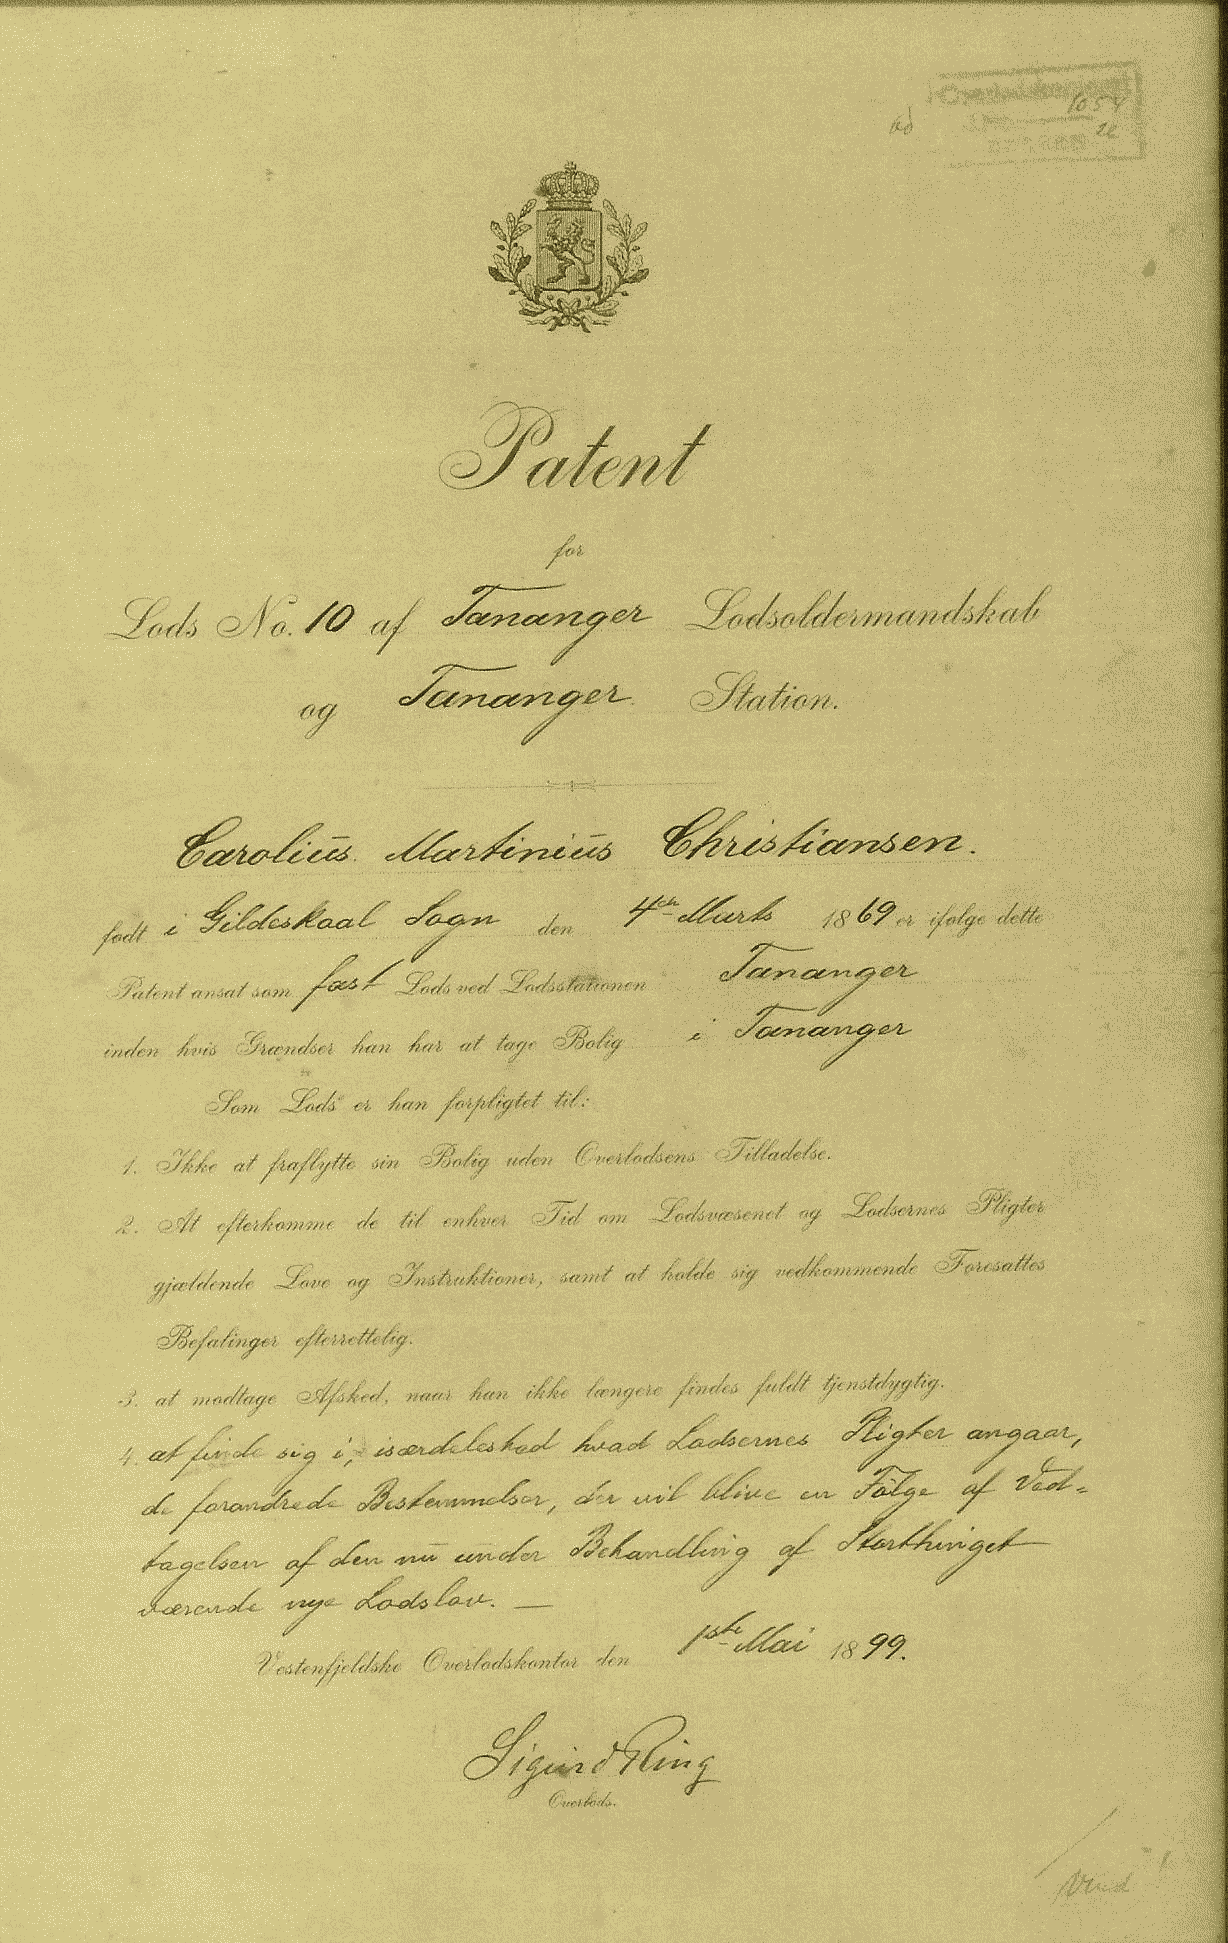 ad 1054
Patent
for
Lods No. 10 af Tananger Lodsoldermandskab
og Tananger Station.
Carolius Martinius Christiansen.
født i Gildeskaal Sogn den 4de Marts 1869 er ifølge dette
Patent ansat som fast Lods ved Lodsstationen Tananger
inden hvis Grændser han har at tage Bolig i Tananger
Som Lods er han forpligtet til:
1. Ikke at fraflytte sin Bolig uden Overlodsens Tilladelse.
2. At efterkomme de til enhver Tid om Lodsvæsenet og Lodsernes Pligter
gjældende Love og Instruktioner, samt at holde sig vedkommende Foresattes
Befalinger efterrettelig.
3. at modtage Afsked, naar han ikke længere findes fuldt tjenstdygtig.
4. at finde sig i, isærdeleshed hvad Lodsernes Pligter angaar,
de forandrede Bestemmelser, der vil blive en Følge af Ved=
tagelsen af den nu under Behandling af Storthinget
værende nye Lodslov. —
Vestenfjeldske Overlodskontor den 1ste Mai 1899.
Sigurd Ring
Overlods.
Vend!